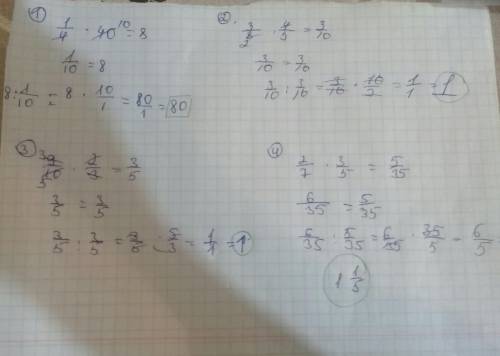 ① 1/4 · 40 10 = 8
1/10 = 8
8 : 1/10 = 8 · 10/1 = 80/1 = 80
② 3/2 · 4/5 = 3/10
3/10 = 3/10
3/10 : 3/10 = 3/10 · 10/3 = 1/1 = 1
③ 3 9/10 5 · 2/3 = 3/5
3/5 = 3/5
3/5 : 3/5 = 3/5 · 5/3 = 1/1 = 1
④ 2/7 · 3/5 = 5/35
6/35 = 5/35
6/35 : 5/35 = 6/35 · 35/5 = 6/5
1 1/5